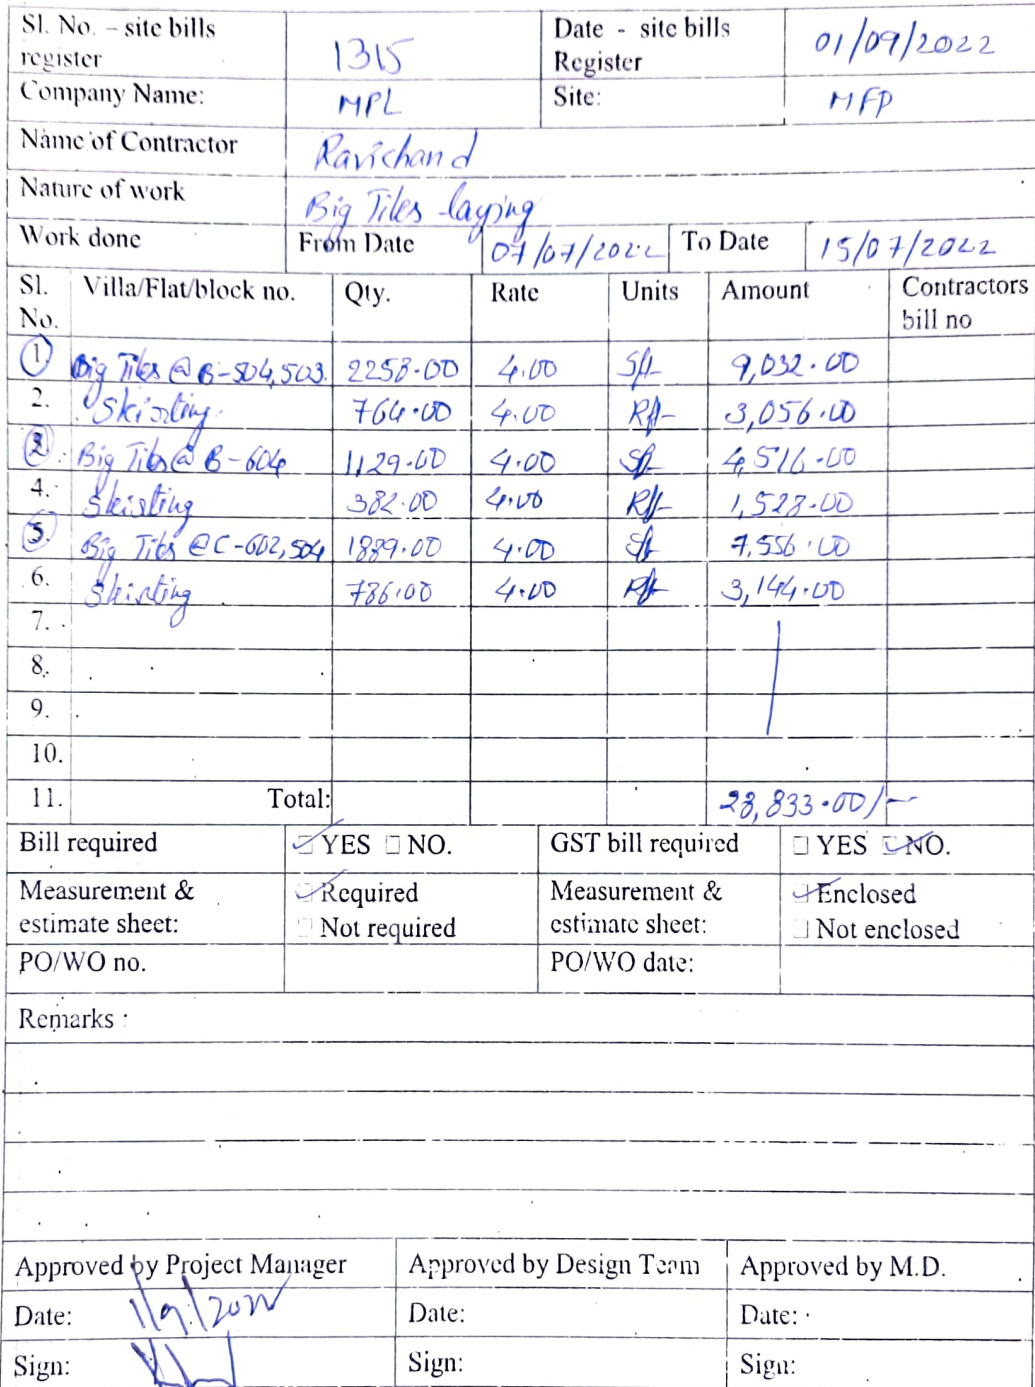 Sl. No. – site bills register 1315 Date - site bills Register 01/09/2022
Company Name: MPL Site: MFP
Name of Contractor Ravichand
Nature of work Big Tiles laying
Work done From Date 07/07/2022 To Date 15/07/2022
Sl. No. Villa/Flat/block no. Qty. Rate Units Amount Contractors bill no
1. Big Tiles @ B-504,503. 2258.00 4.00 Sft 9,032.00
2. Skirting. 764.00 4.00 Rft 3,056.00
2. Big Tiles @ B-604 1129.00 4.00 Sft 4,516.00
4. Skirting 382.00 4.00 Rft 1,528.00
3. Big Tiles @ C-602,504 1889.00 4.00 Sft 7,556.00
6. Skirting 786.00 4.00 Rft 3,144.00
7.
8.
9.
10.
11. Total: 28,833.00/-
Bill required YES NO. GST bill required YES NO.
Measurement & estimate sheet: Required Not required Measurement & estimate sheet: Enclosed Not enclosed
PO/WO no. PO/WO date:
Remarks :
Approved by Project Manager Approved by Design Team Approved by M.D.
Date: 1/9/2022 Date: Date:
Sign: Sign: Sign: